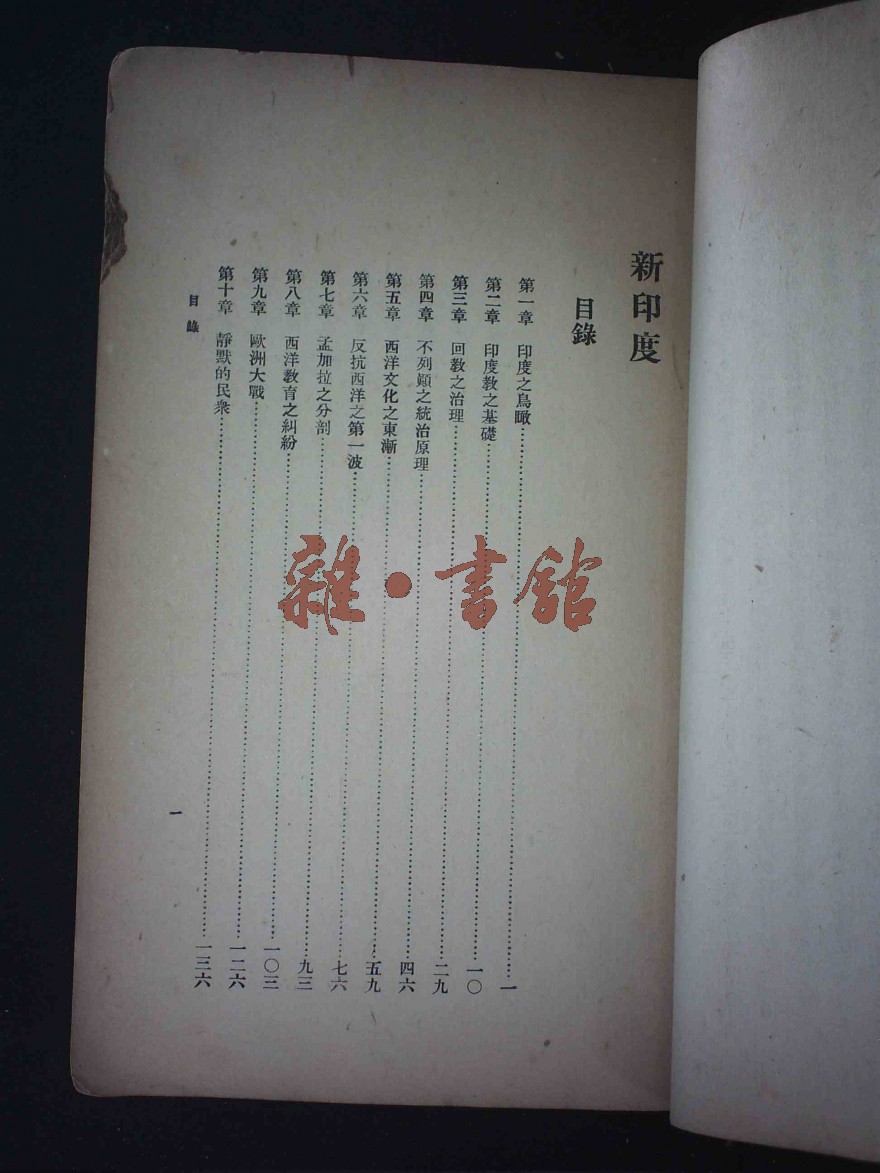 新印度
目錄
第一章 印度之鳥瞰……一
第二章 印度教之基礎……一〇
第三章 回教之治理……二九
第四章 不列顛之統治原理……四六
第五章 西洋文化之東漸……五九
第六章 反抗西洋之第一波……七六
第七章 孟加拉之分剖……九三
第八章 西洋教育之糾紛……一〇三
第九章 歐洲大戰……一二六
第十章 靜默的民衆……一三六
目錄
一
雜·書館